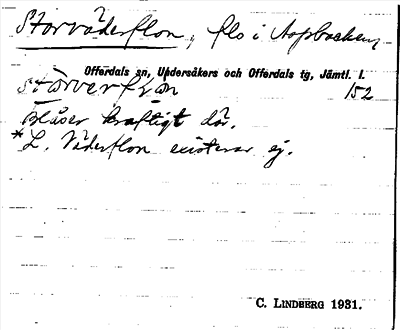 Storväderflon, flo i Aspbacken,
Offerdals sn, Undersåkers och Offerdals tg, Jämtl. l.
152
Blåser kraftigt där.
*L. Väderflon existerar ej.
C. LINDBERG 1931.